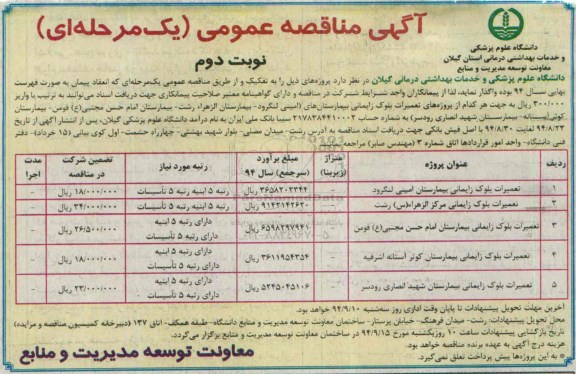 آگهی مناقصه عمومی (یک‌مرحله‌ای)
نوبت دوم
دانشگاه علوم پزشکی
و خدمات بهداشتی درمانی استان گیلان
معاونت توسعه مدیریت و منابع
دانشگاه علوم پزشکی و خدمات بهداشتی درمانی گیلان در نظر دارد پروژه‌های ذیل را به تفکیک و از طریق مناقصه عمومی یک‌مرحله‌ای که انعقاد پیمان به صورت فهرست
بهایی سال ۹۴ بوده واگذار نماید، لذا از پیمانکاران واجد شرایط شرکت در مناقصه و دارای گواهینامه معتبر صلاحیت پیمانکاری جهت دریافت اسناد می‌توانند به ترتیب با واریز
۳۰۰/۰۰۰ ریال به جهت هر کدام از پروژه‌های تعمیرات بلوک زایمانی بیمارستان‌های (امینی لنگرود- بیمارستان الزهراء رشت- بیمارستان امام حسن مجتبی(ع) فومن- بیمارستان
کوثر آستانه- بیمارستان شهید انصاری رودسر) به شماره حساب ۲۱۷۸۳۸۴۴۱۰۰۰۲ سیبا بانک ملی ایران به نام درآمد دانشگاه علوم پزشکی گیلان، پس از انتشار آگهی از تاریخ
۹۴/۸/۲۳ لغایت ۹۴/۸/۳۰ با اصل فیش بانکی جهت دریافت اسناد مناقصه به آدرس رشت- میدان مصلی- بلوار شهید بهشتی- چهارراه حشمت- اول کوی بیانی (۱۵ خرداد)- دفتر
فنی دانشگاه- واحد امور قراردادها اتاق شماره ۳ (مهندس صابر) مراجعه نمایند.
ردیف عنوان پروژه متراژ (زیربنا) مبلغ برآورد (سرجمع) سال ۹۴ رتبه مورد نیاز تضمین شرکت در مناقصه مدت اجرا
۱ تعمیرات بلوک زایمانی بیمارستان امینی لنگرود - ۳۶۵۸۲۰۳۳۴۴ ریال رتبه ۵ ابنیه رتبه ۵ تأسیسات ۱۸/۰۰۰/۰۰۰ ریال -
۲ تعمیرات بلوک زایمانی مرکز الزهراء(س) رشت - ۹۱۴۳۱۴۲۶۳۰ ریال رتبه ۵ ابنیه رتبه ۵ تأسیسات ۳۴/۰۰۰/۰۰۰ ریال -
۳ تعمیرات بلوک زایمانی بیمارستان امام حسن مجتبی(ع) فومن - ۶۵۹۸۲۹۷۹۴۱ ریال دارای رتبه ۵ ابنیه دارای رتبه ۵ تأسیسات ۲۶/۵۰۰/۰۰۰ ریال -
۴ تعمیرات بلوک زایمانی بیمارستان کوثر آستانه اشرفیه - ۳۶۱۱۹۵۴۳۵۴ ریال دارای رتبه ۵ ابنیه دارای رتبه ۵ تأسیسات ۱۸/۰۰۰/۰۰۰ ریال -
۵ تعمیرات بلوک زایمانی بیمارستان شهید انصاری رودسر - ۵۲۴۵۰۴۵۱۰۶ ریال دارای رتبه ۵ ابنیه دارای رتبه ۵ تأسیسات ۲۳/۰۰۰/۰۰۰ ریال -
آخرین مهلت تحویل پیشنهادات تا پایان وقت اداری روز سه‌شنبه ۹۴/۹/۱۰ خواهد بود.
محل تحویل پیشنهادات: رشت- میدان فرهنگ- خیابان پرستار- ساختمان معاونت توسعه مدیریت و منابع دانشگاه- طبقه همکف- اتاق ۱۳۷ (دبیرخانه کمیسیون مناقصه و مزایده)
تاریخ بازگشایی پیشنهادات ساعت ۱۰ روز یکشنبه مورخ ۹۴/۹/۱۵ در ساختمان معاونت توسعه مدیریت و منابع برگزار می‌گردد.
هزینه درج آگهی به عهده برنده مناقصه خواهد بود.
- به این پروژه‌ها پیش پرداخت تعلق نمی‌گیرد.
معاونت توسعه مدیریت و منابع